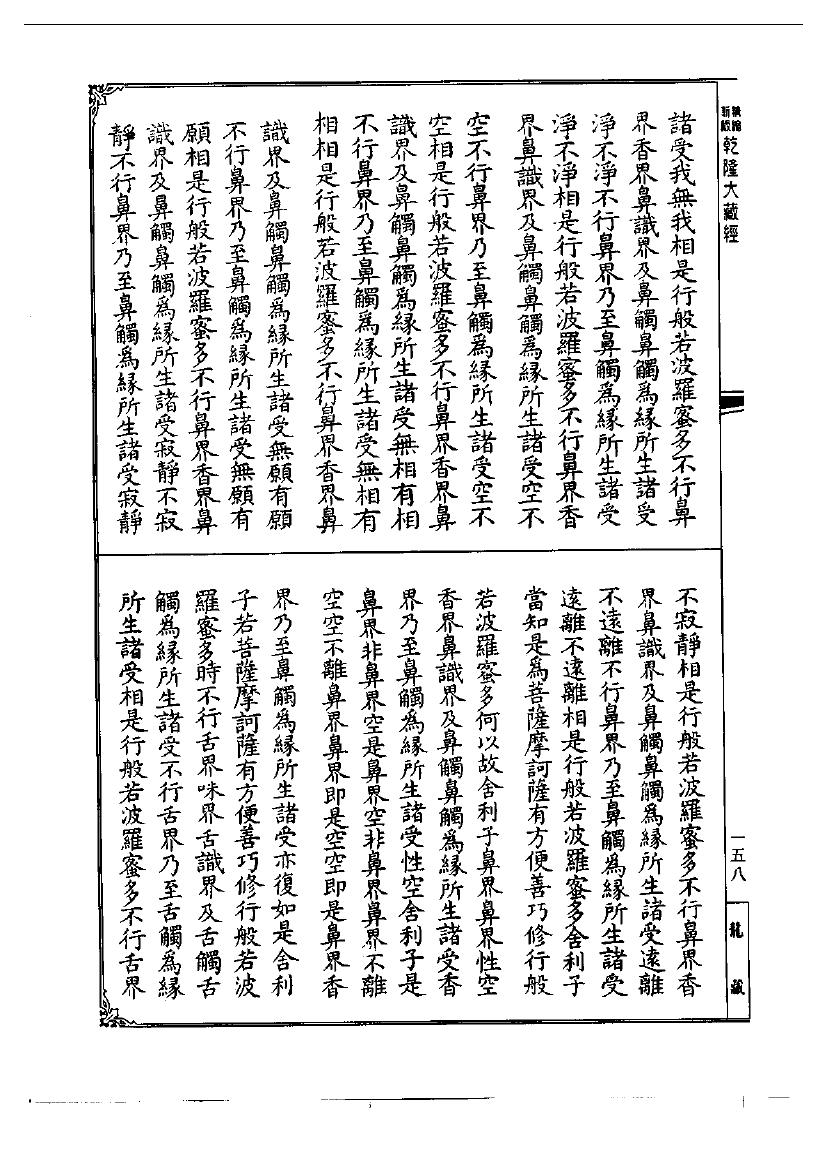 新編縮版
乾隆大藏經
諸受我無我相是行般若波羅蜜多不行鼻
界香界鼻識界及鼻觸鼻觸爲緣所生諸受
淨不淨不行鼻界乃至鼻觸爲緣所生諸受
淨不淨相是行般若波羅蜜多不行鼻界香
界鼻識界及鼻觸鼻觸爲緣所生諸受空不
空不行鼻界乃至鼻觸爲緣所生諸受空不
空相是行般若波羅蜜多不行鼻界香界鼻
識界及鼻觸鼻觸爲緣所生諸受無相有相
不行鼻界乃至鼻觸爲緣所生諸受無相有
相相是行般若波羅蜜多不行鼻界香界鼻
識界及鼻觸鼻觸爲緣所生諸受無願有願
不行鼻界乃至鼻觸爲緣所生諸受無願有
願相是行般若波羅蜜多不行鼻界香界鼻
識界及鼻觸鼻觸爲緣所生諸受寂靜不寂
靜不行鼻界乃至鼻觸爲緣所生諸受寂靜
不寂靜相是行般若波羅蜜多不行鼻界香
界鼻識界及鼻觸鼻觸爲緣所生諸受遠離
不遠離不行鼻界乃至鼻觸爲緣所生諸受
遠離不遠離相是行般若波羅蜜多舍利子
當知是爲菩薩摩訶薩有方便善巧修行般
若波羅蜜多何以故舍利子鼻界鼻界性空
香界鼻識界及鼻觸鼻觸爲緣所生諸受香
界乃至鼻觸爲緣所生諸受性空舍利子是
鼻界非鼻界空是鼻界空非鼻界鼻界不離
空空不離鼻界鼻界即是空空即是鼻界香
界乃至鼻觸爲緣所生諸受亦復如是舍利
子若菩薩摩訶薩有方便善巧修行般若波
羅蜜多時不行舌界味界舌識界及舌觸舌
觸爲緣所生諸受不行舌界乃至舌觸爲緣
所生諸受相是行般若波羅蜜多不行舌界
一五八
龍藏